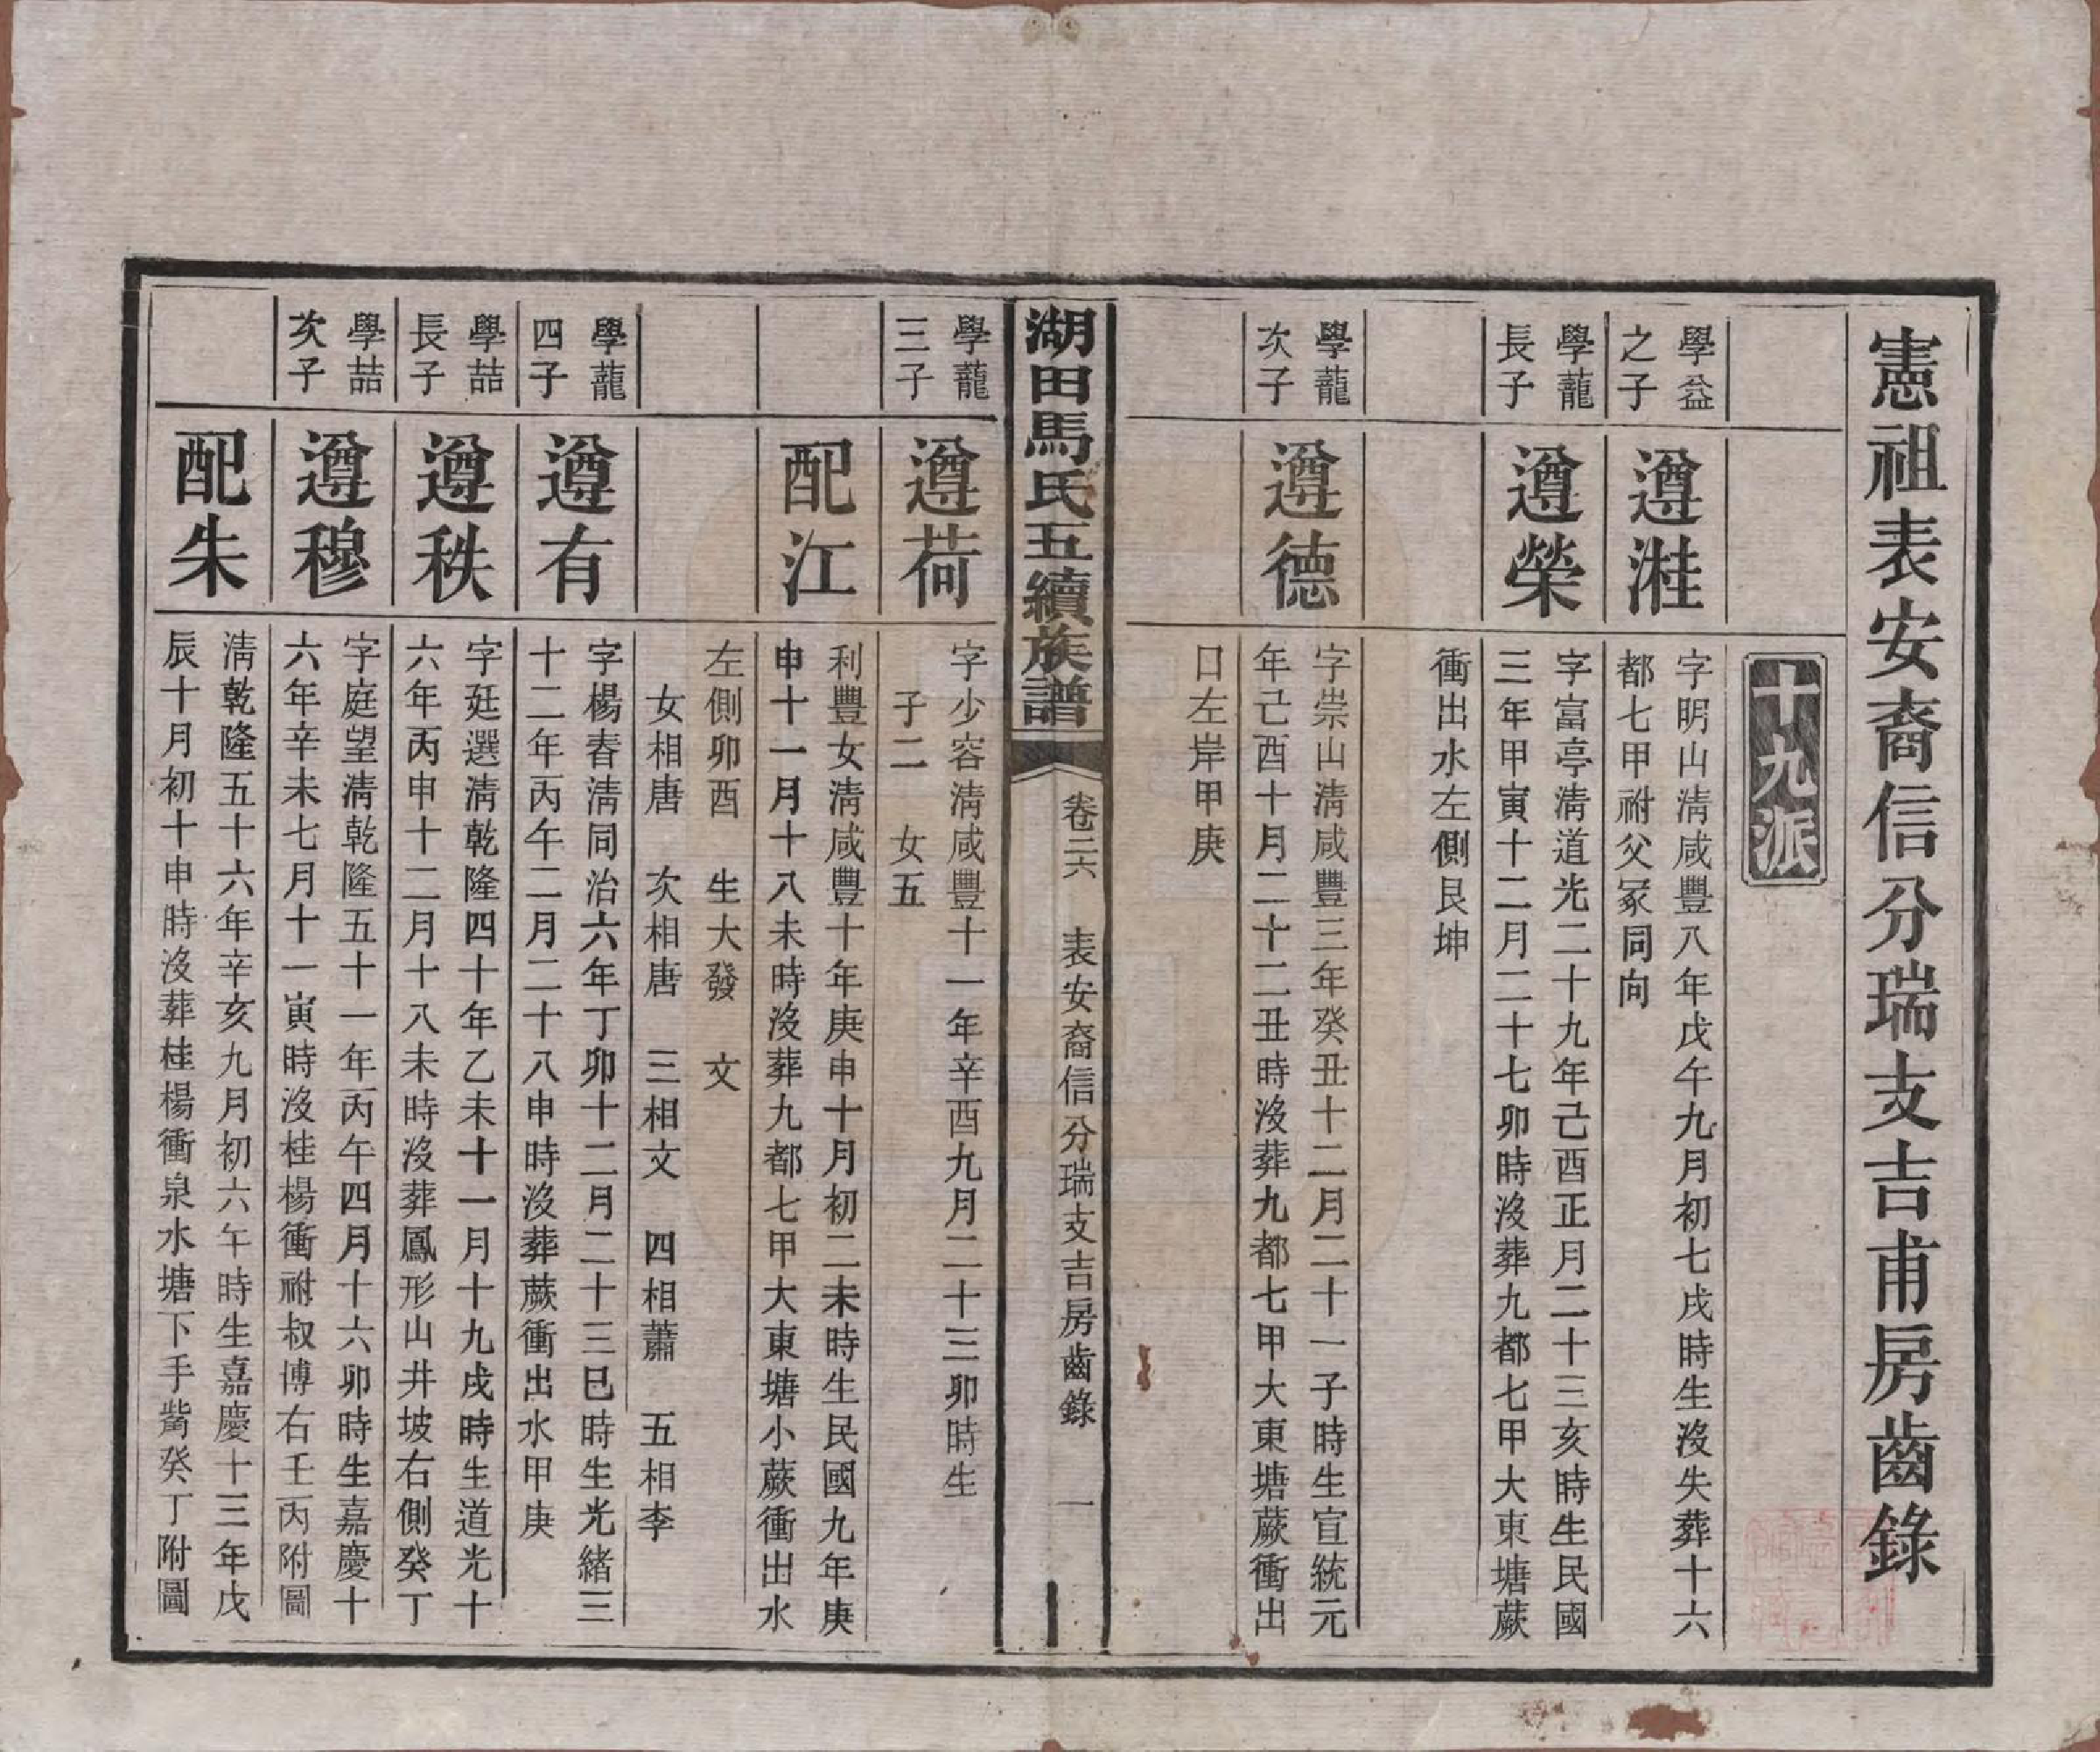 憲祖表安裔信分瑞支吉甫房齒錄
十九派
學益之子
遵溎
字明山淸咸豐八年戊午九月初七戌時生沒失葬十六
都七甲祔父冢同向
學龍長子
遵榮
字富亭淸道光二十九年己酉正月二十三亥時生民國
三年甲寅十二月二十七卯時沒葬九都七甲大東塘蕨
衝出水左側艮坤
學龍次子
遵德
字崇山淸咸豐三年癸丑十二月二十一子時生宣統元
年己酉十月二十二丑時沒葬九都七甲大東塘蕨衝出
口左岸甲庚
湖田馬氏五續族譜
卷三六
表安裔信分瑞支吉房齒錄
一
學龍三子
遵荷
字少容淸咸豐十一年辛酉九月二十三卯時生
子二 女五
配江
利豐女淸咸豐十年庚申十月初二未時生民國九年庚
申十一月十八未時沒葬九都七甲大東塘小蕨衝出水
左側卯酉 生大發 文
女相唐 次相唐 三相文 四相蕭 五相李
學龍四子
遵有
字楊春淸同治六年丁卯十二月二十三巳時生光緒三
十二年丙午二月二十八申時沒葬蕨衝出水甲庚
學喆長子
遵秩
字廷選淸乾隆四十年乙未十一月十九戌時生道光十
六年丙申十二月十八未時沒葬鳳形山井坡右側癸丁
學喆次子
遵穆
字庭望淸乾隆五十一年丙午四月十六卯時生嘉慶十
六年辛未七月十一寅時沒桂楊衝祔叔博右壬丙附圖
配朱
淸乾隆五十六年辛亥九月初六午時生嘉慶十三年戊
辰十月初十申時沒葬桂楊衝泉水塘下手嵴癸丁附圖